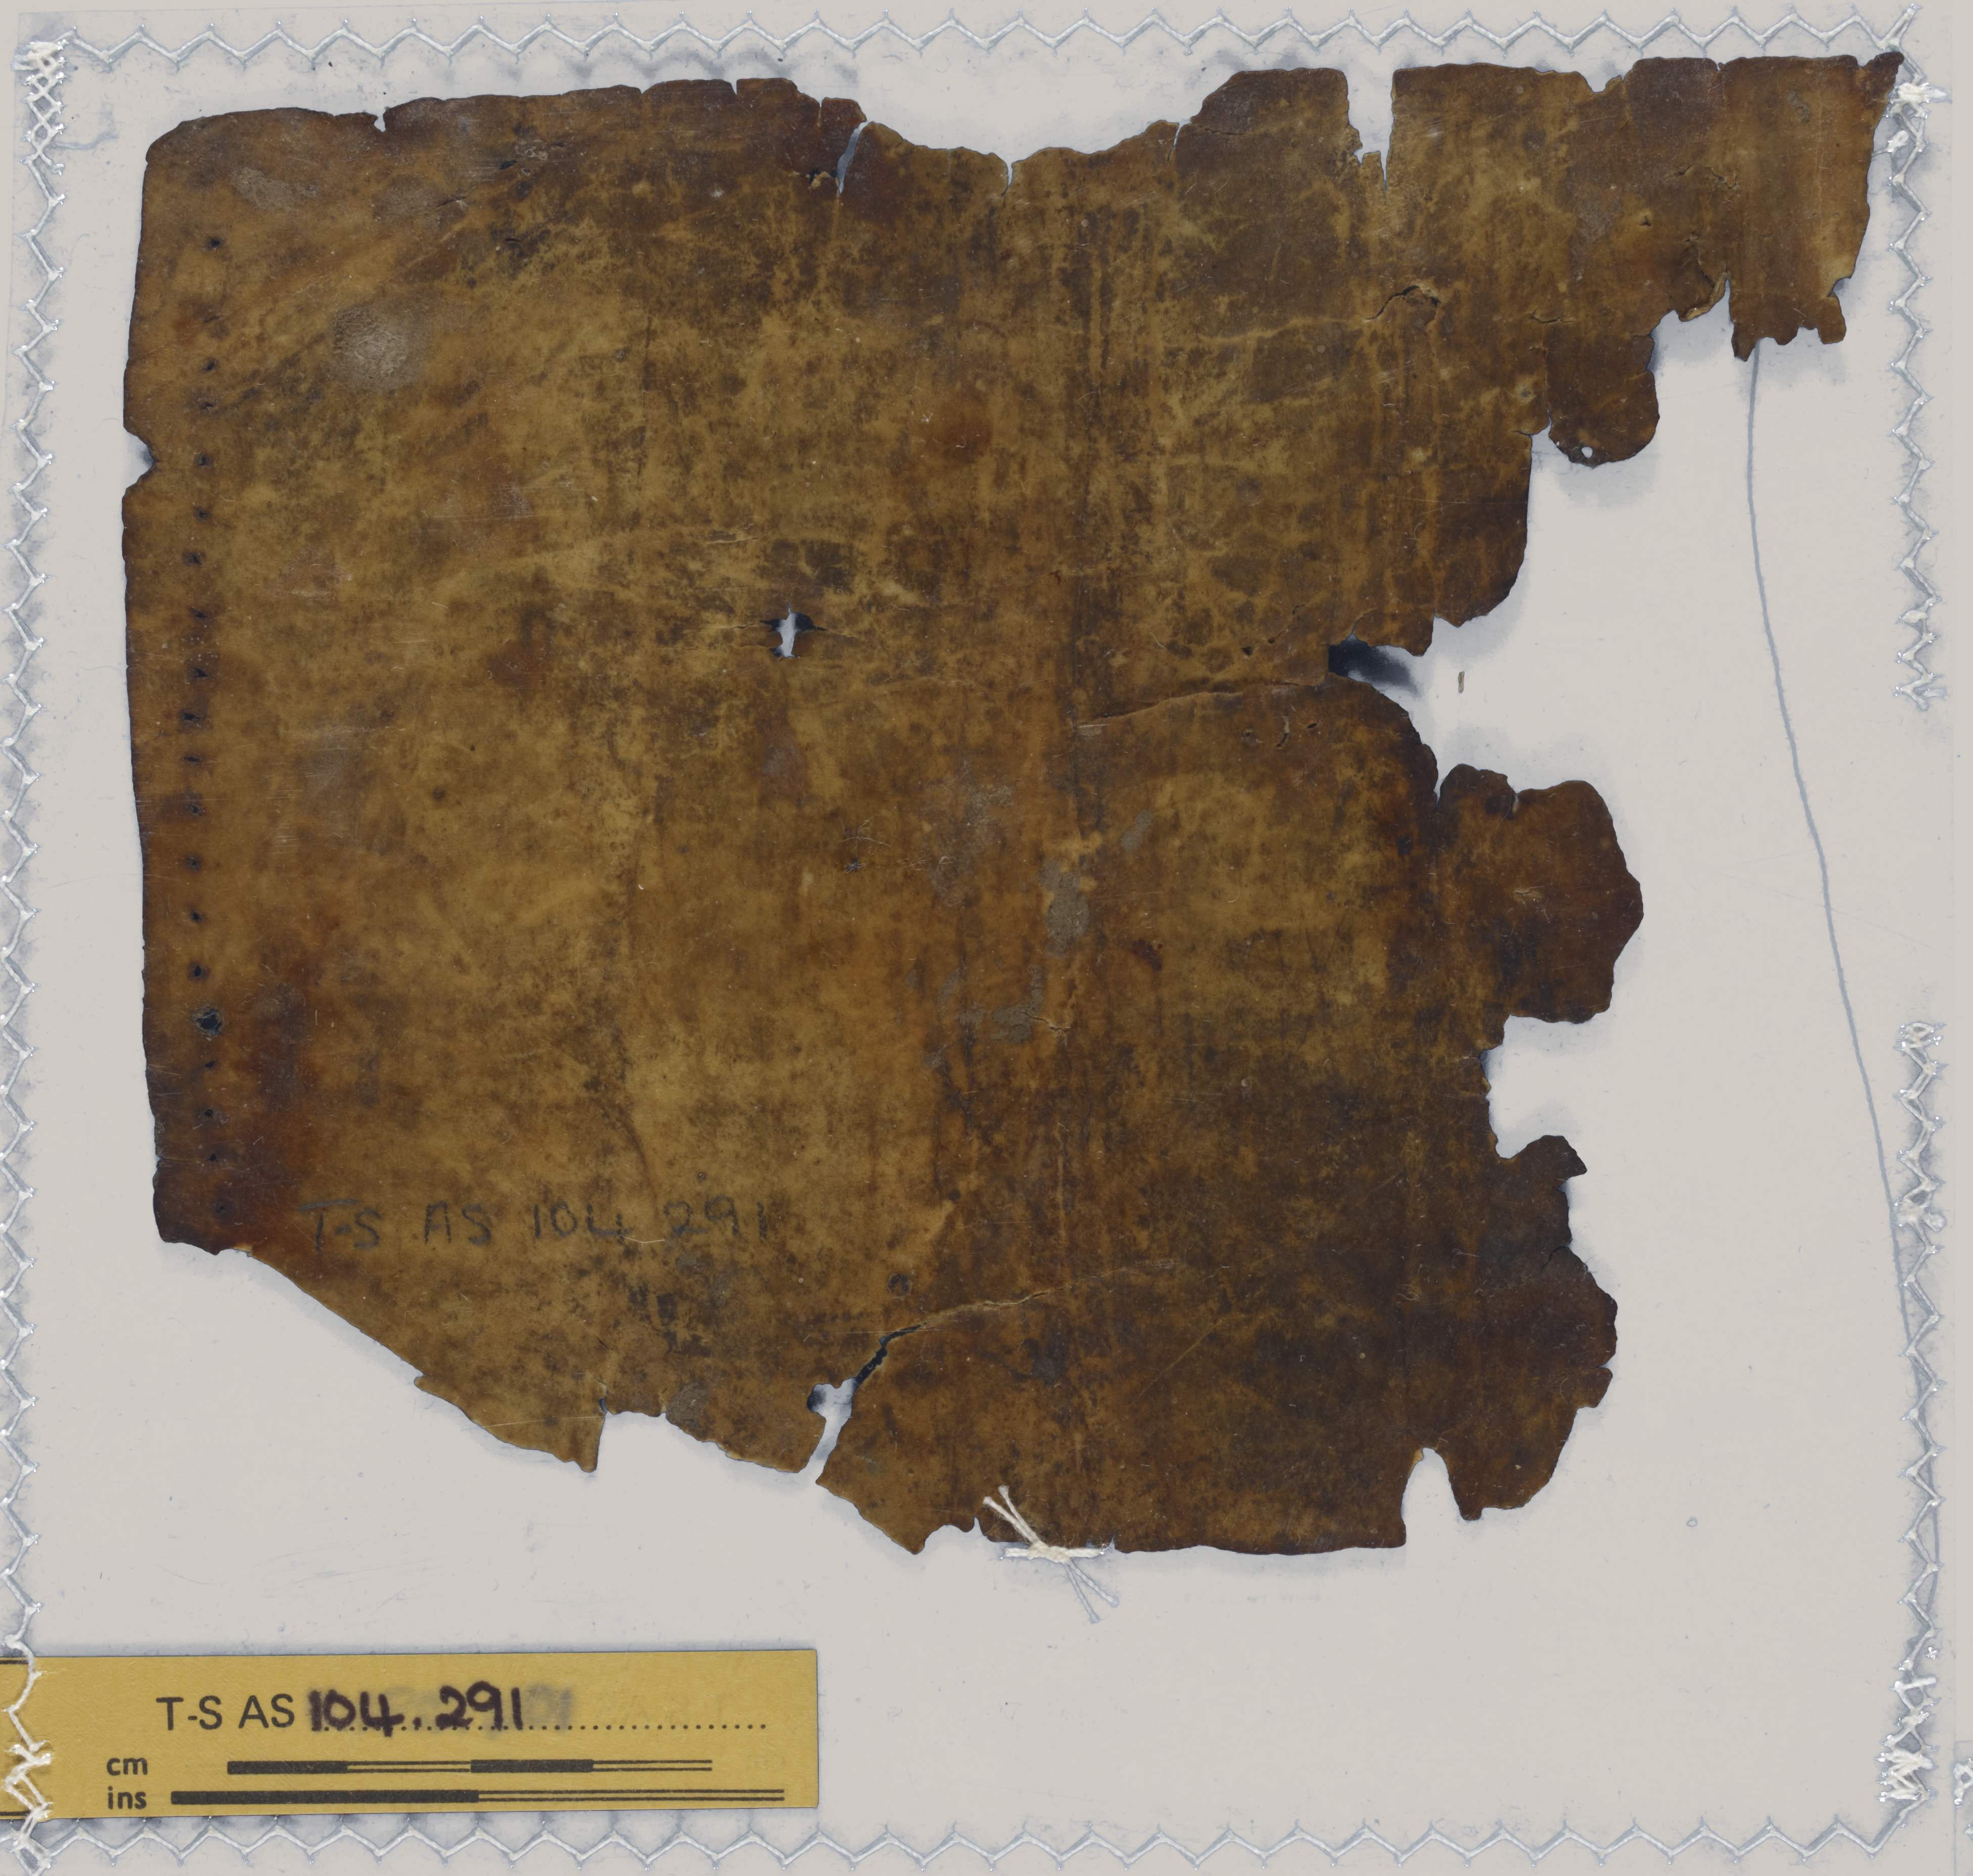 T-S AS 104 291
T-S AS 104.291
cm
ins